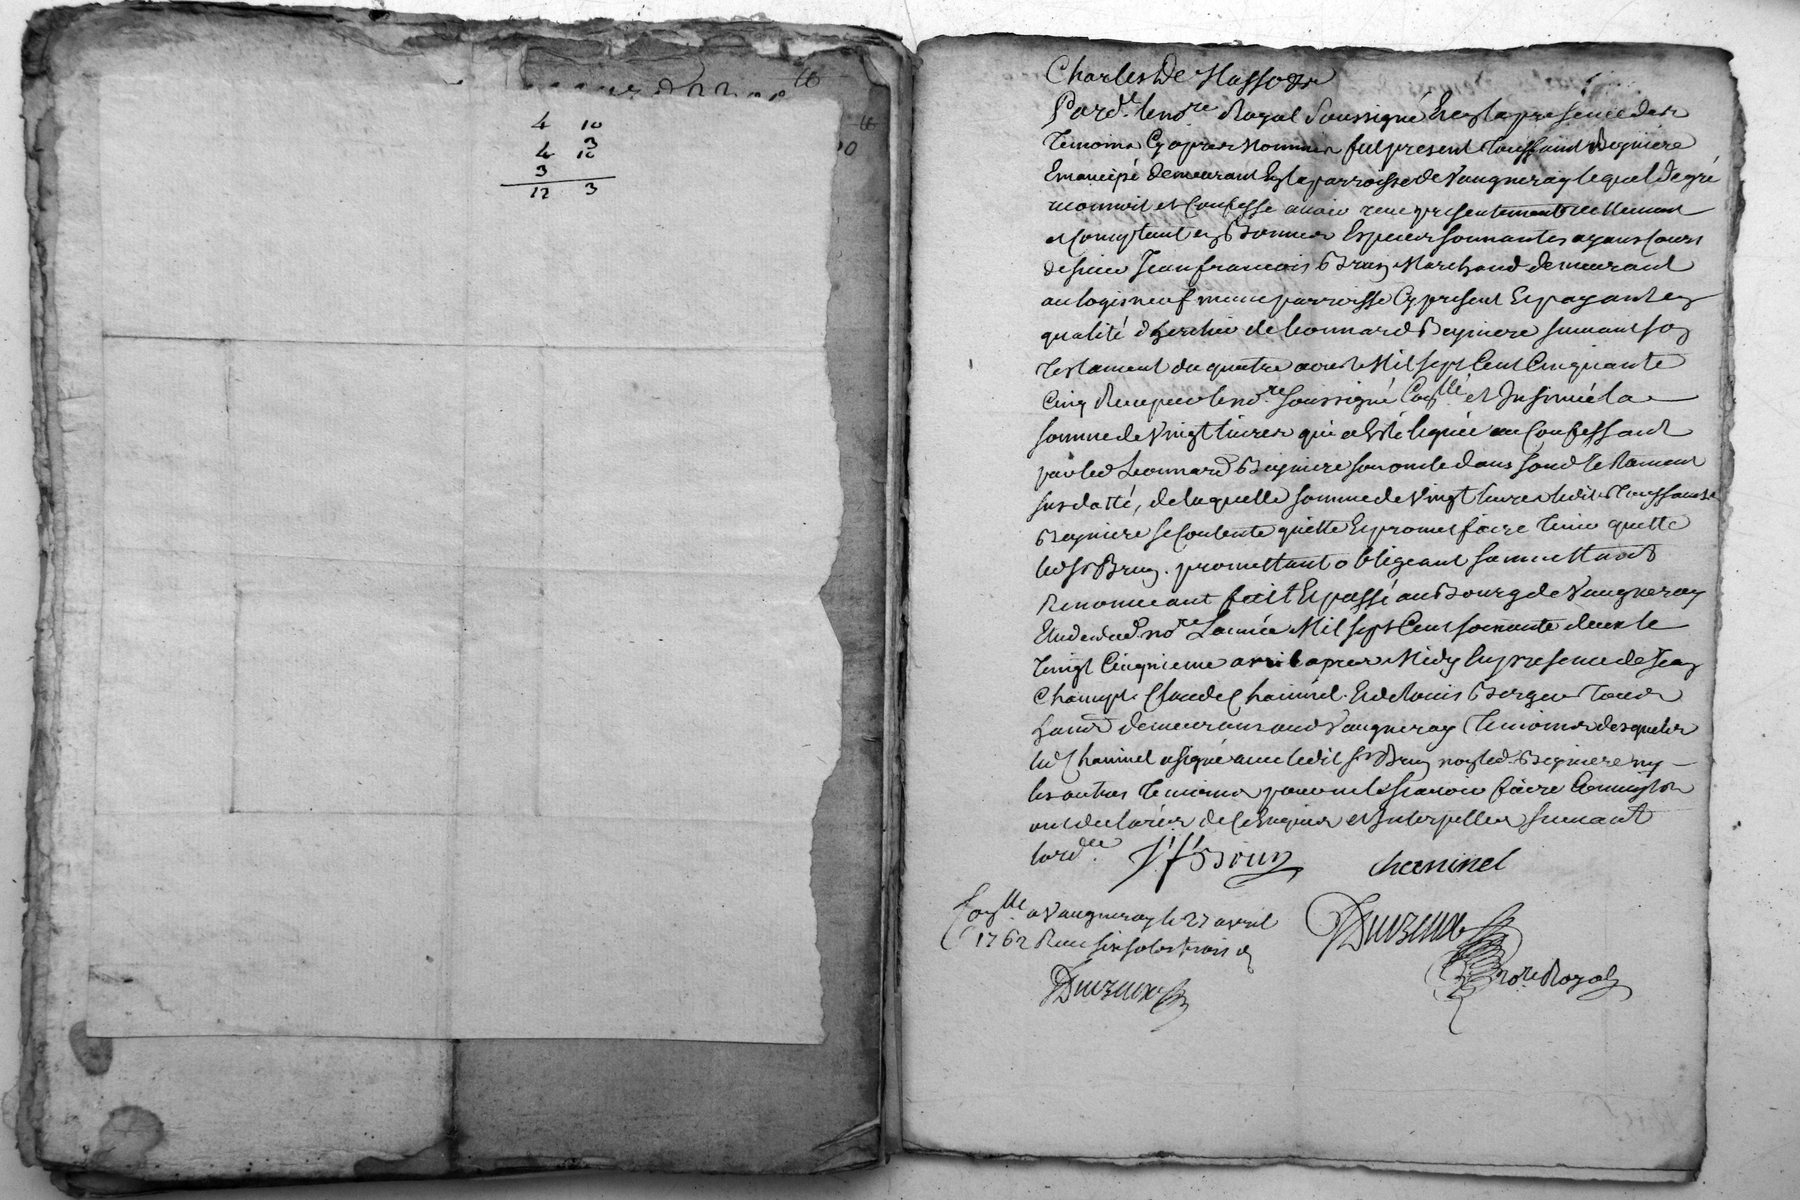 4 10
3
4 10
3
12 3
Charles De Masso &r
Pard.t le no.re Royal Soussigné Et en la presence des
temoins Cy apres Nommés fut present Toussaint Beyniere
Emancipé demeurant En la parroisse de Vaugneray lequel de gré
reconnoit et Confesse avoir recu presentement reellement
et Comptant en Bonnes Especes sonnantes ayans Cours
de sieur Jean francois Brun Marchand demeurant
au logis neuf meme parroisse Cy present Et payant en
qualité d'heritier de Leonnard Beyniere suivant son
Testament du quatre aoust Mil sept Cent Cinquante
Cinq Recu par le no.re soussigné Con.llé et Insinué la
somme de Vingt livres qui a Eté leguée au Confessant
par led Leonnard Beyniere son oncle dans sond testament
susdatté, de laquelle somme de Vingt livres ledit Toussaint
Beyniere se Contente quitte Et promet faire tenir quitte
led Sr Brun. promettant obligeant soumettant
Renonceant fait Et passé au Bourg de Vaugneray
Etude dud no.re L'année Mil sept Cent soixante deux le
Vingt Cinquieme avril apres Midy En presence de Jean
Champt. Claude Chaninel. Et de Louis Berger
demeurans aud Vaugneray temoins desquels
led Chaninel a signé avec ledit Sr Brun non led Beyniere ny
les autres temoins pour ne le scavoir faire Comme ils
ont declarés de Ce Enquis et Interpellés suivant
lord.ce J f Brun chaninel
Con.llé a Vaugneray le 27 avril
1762 Recu six sols trois d
no.re Royal